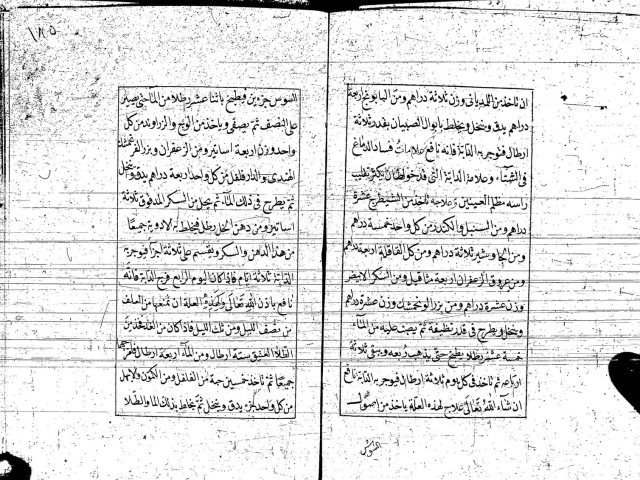 ان تاخذ من اللادباى وزن ثلاثة دراهم ومن البابونج اربعة
دراهم يدق وينخل ويخلط بابوال الصبيان بقدر ثلاثة
ارطال فتوجر به الدابة فانه نافع علامات فساد الدماغ
فى الشتاء وعلامة الدابة التى قد خولطان يكثر تقليب
راسه مظلم العينين علاجه تاخذ من الشيطرج عشرة
دراهم ومن السنبل والكندر من كل واحد خمسة دراهم
ومن ثلاثة دراهم ومن كل القاقلة اربعة دراهم
ومن عروق الزعفران اربعة مثاقيل ومن السكر الابيض
وزن عشرة دراهم ومن بزر وزن عشرة دراهم
وينخل ويطرح فى قدر نظيفة ثم يصب عليه من الماء
خمسة عشر رطلا يطبخ حتى يذهب ربعه ويبقى ثلاثة
ارباعه ثم تاخذ فى كل يوم ثلاثة ارطال فيوجر به الدابة نافع
ان شاء الله تعالى علاج لهذه العلة ياخذ من اصول
السوس
١٨٥
السوس جزءين ويطبخ باثنا عشر رطلا من الماء حتى يصير
على النصف ثم يصفى وياخذ من الوج والزراوند من كل
واحد وزن اربعة اساتير ومن الزعفران وبزر
الهندى والدار فلفل من كل واحد اربعة دراهم يدق وينخل
ثم يطرح فى ذلك الماء ثم يجعل من السكر المدقوق ثلاثة
اساتير ومن دهن الخل رطل فيخلط به لادوية جميعا
من هذا الدهن والسكر ويقسم على ثلاثة اجزا فيوجر به
الدابة ثلاثة ايام فاذا كان اليوم الرابع فرح الدابة فانه
نافع باذن الله تعالى العلة ان تمنعها من العلف
من نصف الليل ومن ثلث الليل فاذا كان من الغد فخذ من
الطلا العتيق ستة ارطال ومن الماء اربعة ارطال
جميعا ثم تاخذ خمسين حبة من الفلفل ومن الكمون
من كل واحد يدق وينخل ثم يخلط بذلك الماء والطلا